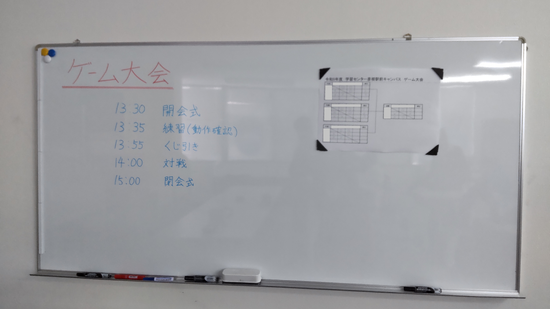 ゲーム大会
13:30 開会式
13:35 練習(動作確認)
13:55 くじ引き
14:00 対戦
15:00 閉会式
ゲーム大会